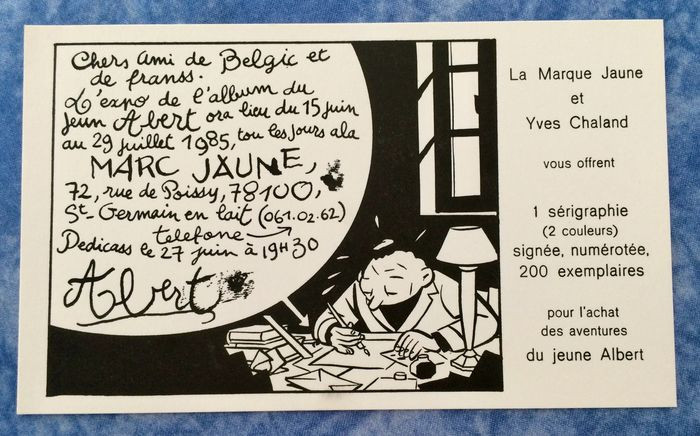 Chers Ami de Belgic et
de franss.
L'expo de l'album du
jeun Abert ora lieu du 15 juin
au 29 juillet 1985, tou les jours a la
MARC JAUNE,
72, rue de Poissy, 78100,
St-Germain en lait (061.02.62)
telefone
Dedicass le 27 juin à 19H30
Albert
La Marque Jaune
et
Yves Chaland
vous offrent
1 sérigraphie
(2 couleurs)
signée, numérotée,
200 exemplaires
pour l'achat
des aventures
du jeune Albert